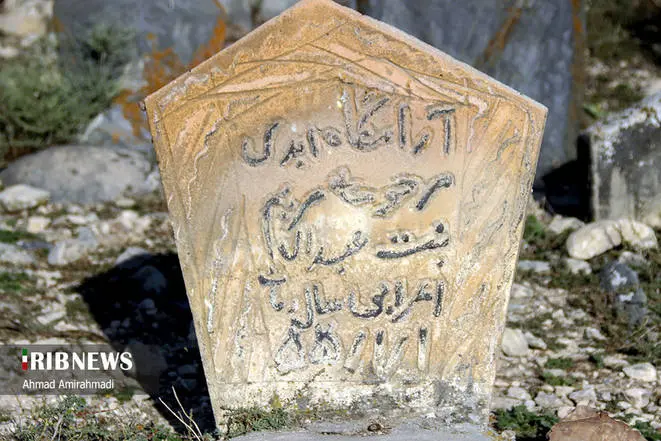 آرامگاه ابدی
مرحومه
مریم
بنت عبدال
اعرابی سال
۵۵/۱۲/۱
IRIBNEWS
Ahmad Amirahmadi